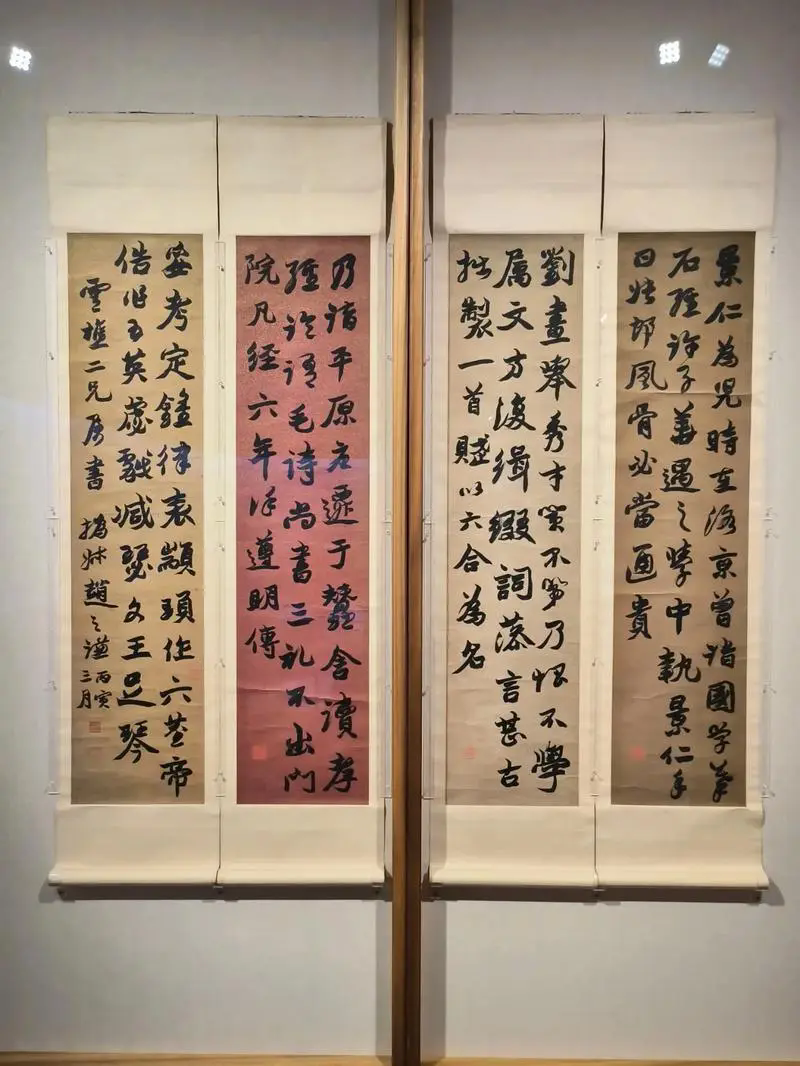 景仁為兒時在洛京曾詣國學摹
石經許子華遇之學中執景仁手
曰張郎風骨必當通貴
劉晝舉秀才策不第乃恨不學
屬文方復緝綴詞藻言甚古
拙製一首賦以六合為名
乃詣平原唐遷于蠶舍讀孝
經論語毛詩尚書三礼不出門
院凡經六年徐遵明傳
安考定鐘律表顓頊作六莖帝
俈作五英虙戲減瑟文王足琴
雲樵二兄屬書 撝叔趙之謙 丙寅
三月